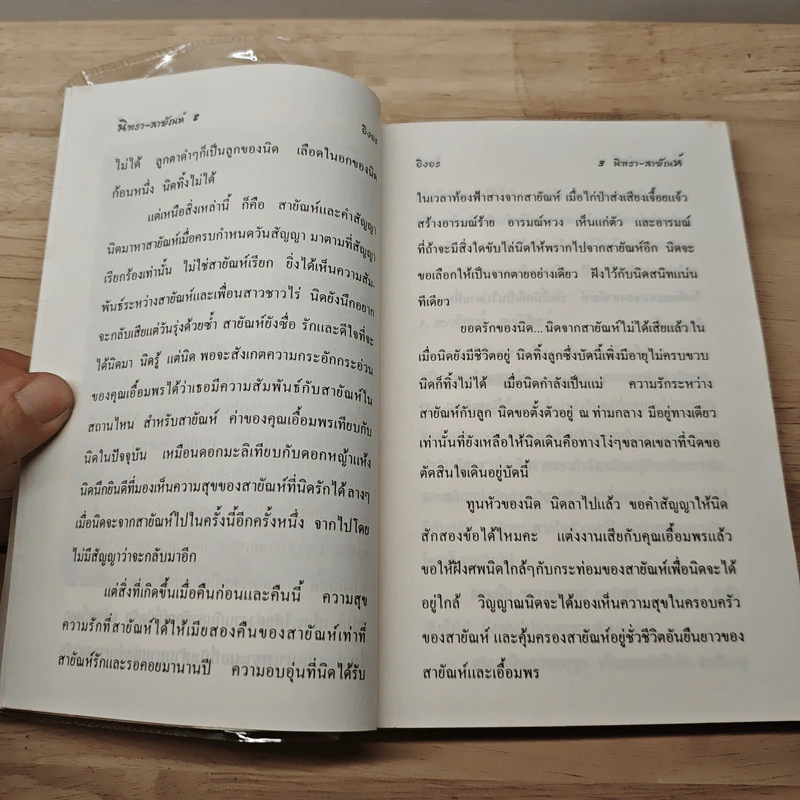 นิทรา-สายัณห์ 2
อิงอร
ไม่ได้ ลูกตาดำๆก็เป็นลูกของนิด เลือดในอกของนิด
ก้อนหนึ่ง นิดทิ้งไม่ได้
แต่เหนือสิ่งเหล่านี้ ก็คือ สายัณห์และคำสัญญา
นิดมาหาสายัณห์เมื่อครบกำหนดวันสัญญา มาตามที่สัญญา
เรียกร้องเท่านั้น ไม่ใช่สายัณห์เรียก ยิ่งได้เห็นความสัม-
พันธ์ระหว่างสายัณห์และเพื่อนสาวชาวไร่ นิดยังนึกอยาก
จะกลับเสียแต่วันรุ่งด้วยซ้ำ สายัณห์ยังซื่อ รักและดีใจที่จะ
ได้นิดมา นิดรู้ แต่นิด พอจะสังเกตความกระอักกระอ่วน
ของคุณเอื้อมพรได้ว่าเธอมีความสัมพันธ์กับสายัณห์ใน
สถานไหน สำหรับสายัณห์ ค่าของคุณเอื้อมพรเทียบกับ
นิดในปัจจุบัน เหมือนดอกมะลิเทียบกับดอกหญ้าแห้ง
นิดนึกยินดีที่มองเห็นความสุขของสายัณห์ที่นิดรักได้ลางๆ
เมื่อนิดจะจากสายัณห์ไปในครั้งนี้อีกครั้งหนึ่ง จากไปโดย
ไม่มีสัญญาว่าจะกลับมาอีก
แต่สิ่งที่เกิดขึ้นเมื่อคืนก่อนและคืนนี้ ความสุข
ความรักที่สายัณห์ได้ให้เมียสองคืนของสายัณห์เท่าที่
สายัณห์รักและรอคอยมานานปี ความอบอุ่นที่นิดได้รับ
อิงอร
3 นิทรา-สายัณห์
ในเวลาท้องฟ้าสางจากสายัณห์ เมื่อไก่ป่าส่งเสียงเจื้อยแจ้ว
สร้างอารมณ์ร้าย อารมณ์หวง เห็นแก่ตัว และอารมณ์
ที่ถ้าจะมีสิ่งใดขับไล่นิดให้พรากไปจากสายัณห์อีก นิดจะ
ขอเลือกให้เป็นจากตายอย่างเดียว ฝังไว้กับนิดสนิทแน่น
ทีเดียว
ยอดรักของนิด...นิดจากสายัณห์ไม่ได้เสียแล้ว ใน
เมื่อนิดยังมีชีวิตอยู่ นิดทิ้งลูกซึ่งบัดนี้เพิ่งมีอายุไม่ครบขวบ
นิดก็ทิ้งไม่ได้ เมื่อนิดกำลังเป็นแม่ ความรักระหว่าง
สายัณห์กับลูก นิดขอตั้งตัวอยู่ ณ ท่ามกลาง มีอยู่ทางเดียว
เท่านั้นที่ยังเหลือให้นิดเดินคือทางโง่ๆขลาดเขลาที่นิดขอ
ตัดสินใจเดินอยู่บัดนี้
ทูนหัวของนิด นิดลาไปแล้ว ขอคำสัญญาให้นิด
สักสองข้อได้ไหมคะ แต่งงานเสียกับคุณเอื้อมพรแล้ว
ขอให้ฝังศพนิดใกล้ๆกับกระท่อมของสายัณห์เพื่อนิดจะได้
อยู่ใกล้ วิญญาณนิดจะได้มองเห็นความสุขในครอบครัว
ของสายัณห์ และคุ้มครองสายัณห์อยู่ชั่วชีวิตอันยืนยาวของ
สายัณห์และเอื้อมพร